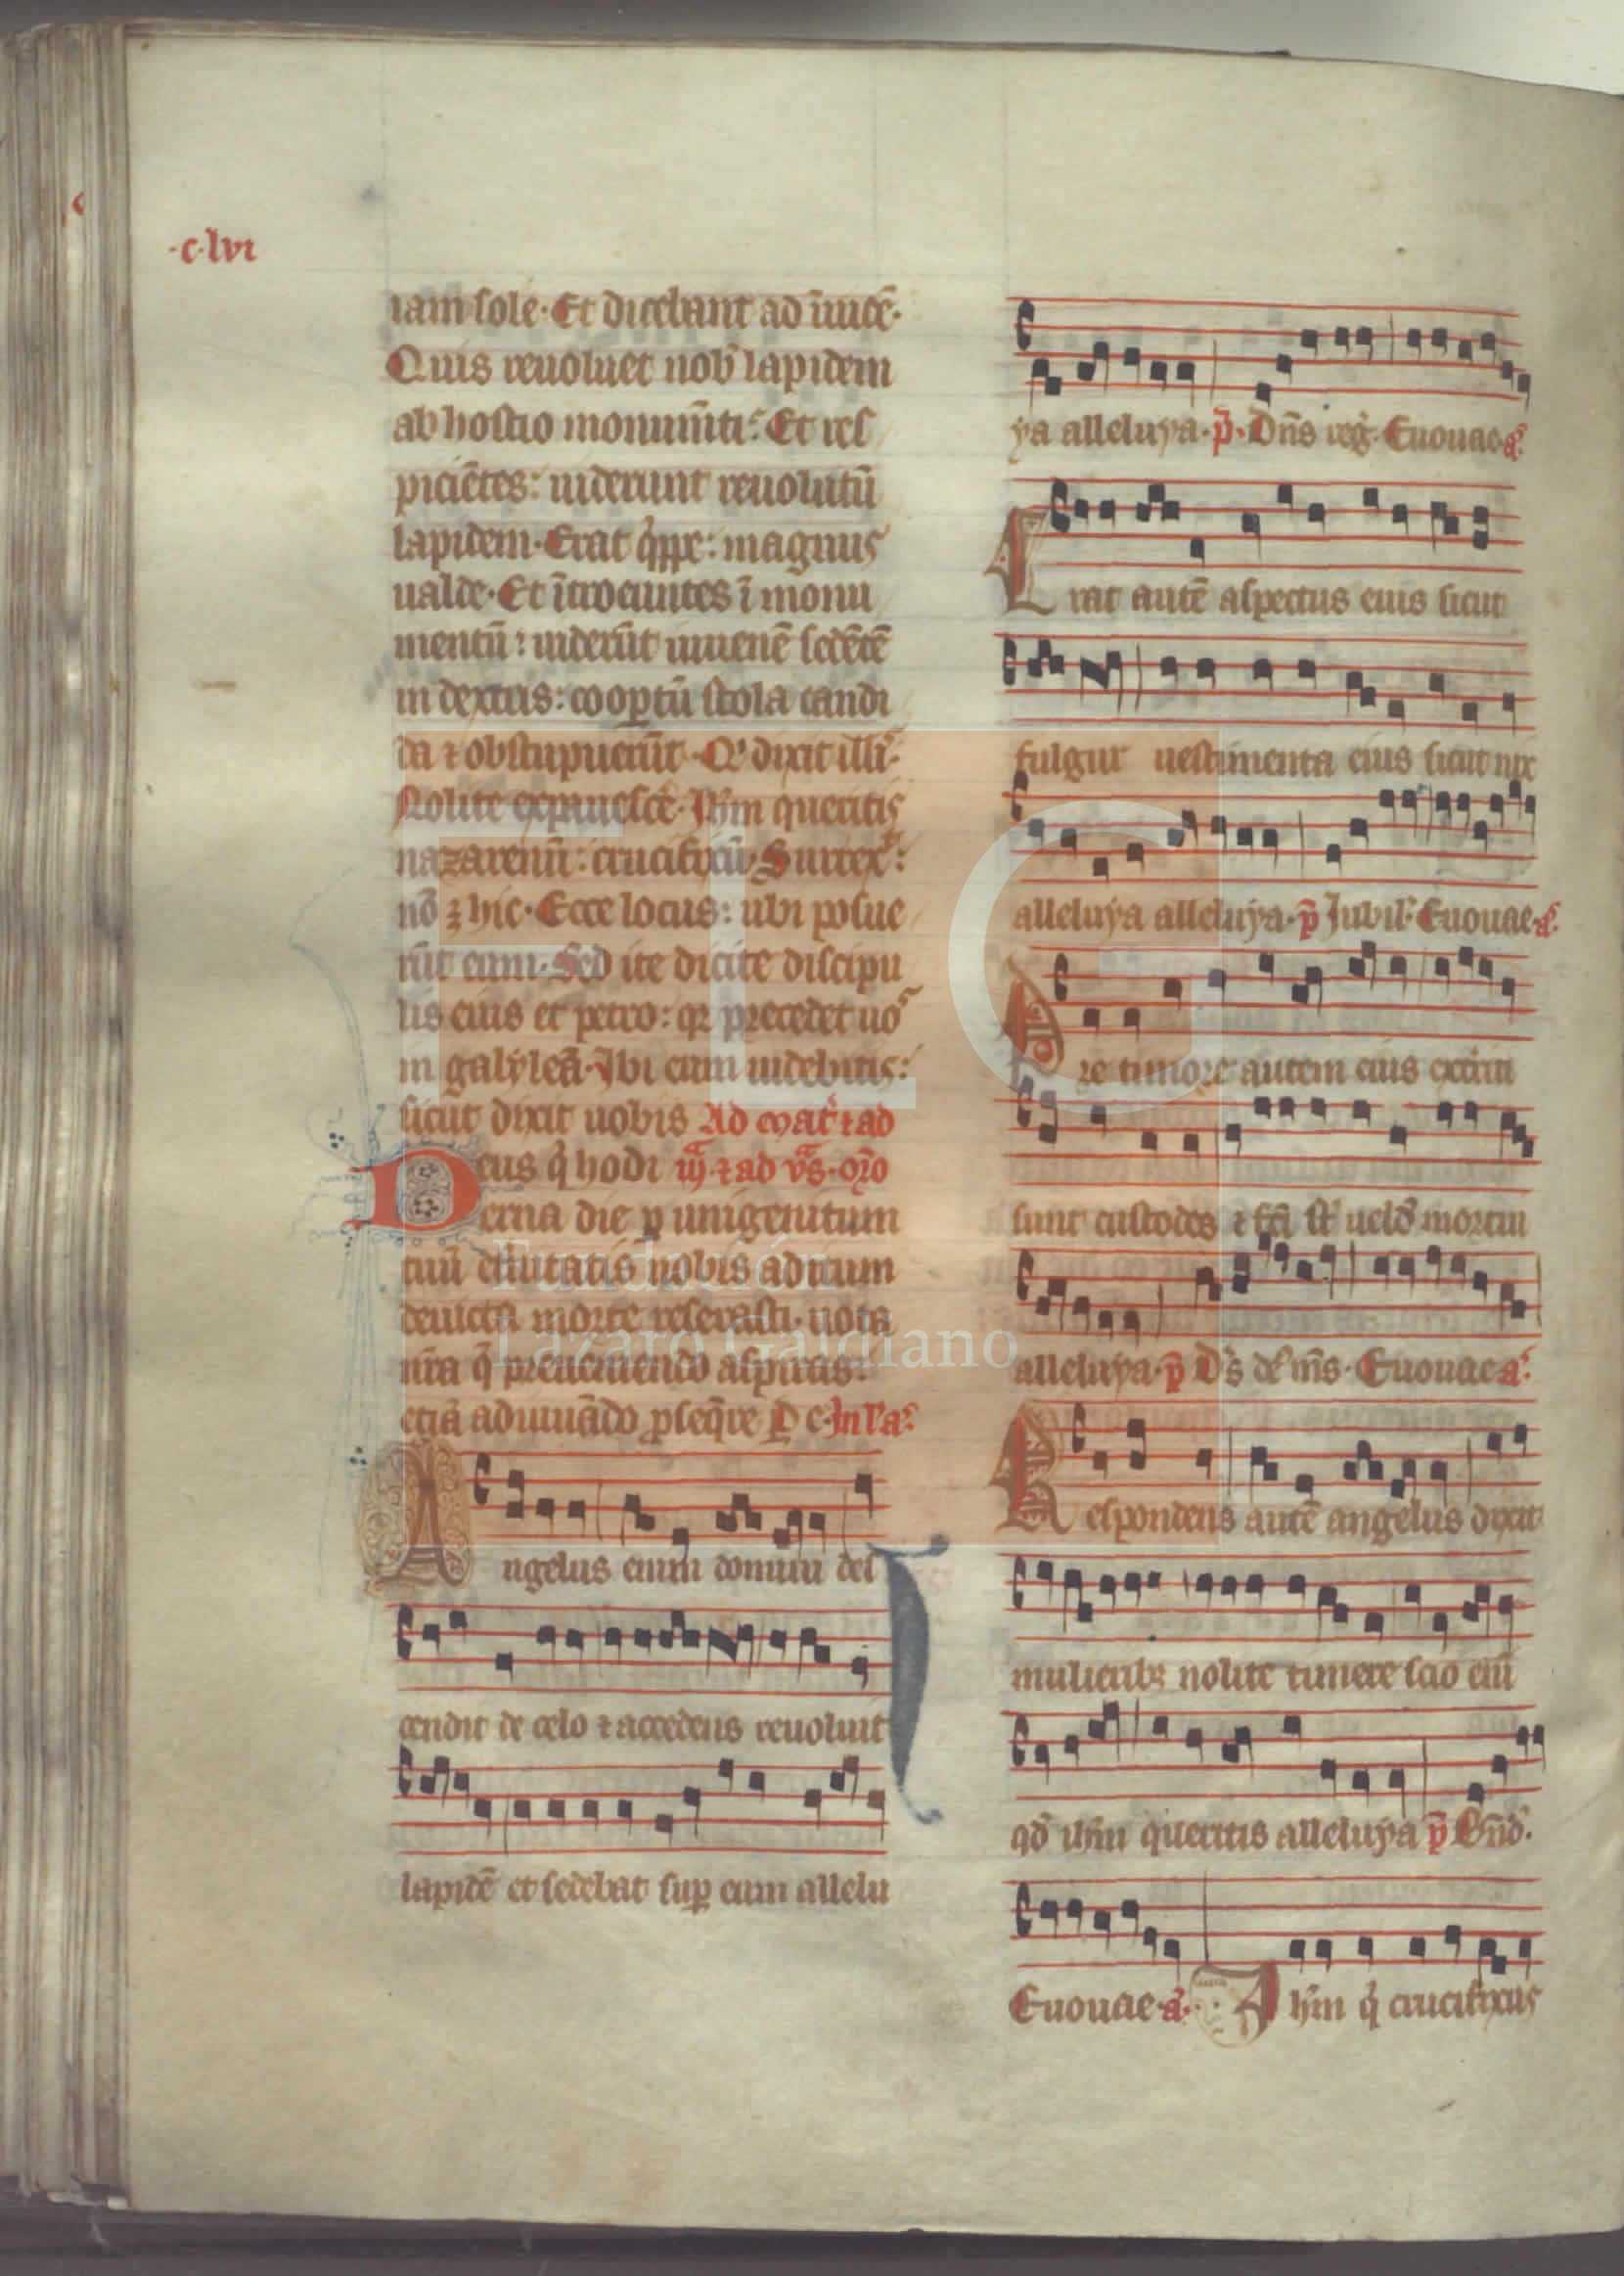 ·c·lvi
iam sole· Et dicebant ad īuicē·
Quis reuoluet nob̄ lapidem
ab hostio monumīti: Et res
piciētes: uiderunt reuolutū
lapidem· Erat q̇ppe: magnus
ualde· Et ītroeuntes ī monu
mentū: uiderūt iuuenē sedētē
in dextris: coop̄tū stola candi
da ⁊ obstupuerūt· Qͥ dixit illiˢ·
Nolite expauescē· Ihm̄ queritis
nazarenū: crucifixū· Surrex͛:
nō ꝫ hic· Ecce locus: ubi posue
rūt eum· Sed ite dicite discipu
lis eius et petro: qꝛ precedet uoˢ
in galyleā· Ibi eum uidebitis:
sicut dixit uobis Ad mat̛ ⁊ ad
Deus q̇ hodi iiiᵃ̄ ⁊ ad v̄s· or̄o
erna die ꝑ unigenitum
tuū et̛nitatis nobis aditum
deuicta morte reserasti· uota
nr̄a q̄ preueniendo aspiras:
etiā adiuuādo ꝓseq̄re P̱ e· In l'a͛:
Angelus enim domini des
cendit de celo ⁊ accedens reuoluit
lapidē et sedebat sup̱ eum allelu
ya alleluya· p̄· Dn̄s reg̛· Euouae a͛·
Erat autē aspectus eius sicut
fulgur uestimenta eius sicut nix
alleluya alleluya· p̄ Jubil͛· Euouae· a͛·
Pre timore autem eius exterri͛ti
sunt custodes ⁊ fc̄i st̄ uelđ mortui
alleluya· p̄ D̛s d͛ m̄s· Euouae a͛·
Respondens autē angelus dixit
mulieribꝫ nolite timere scio eni͛
qđ ihm̄ queritis alleluya p̄ Cn̄d͛·
Euouae· a͛· Ihm̄ q̇ crucifixus
FLG
Fundación
Lázaro Galdiano